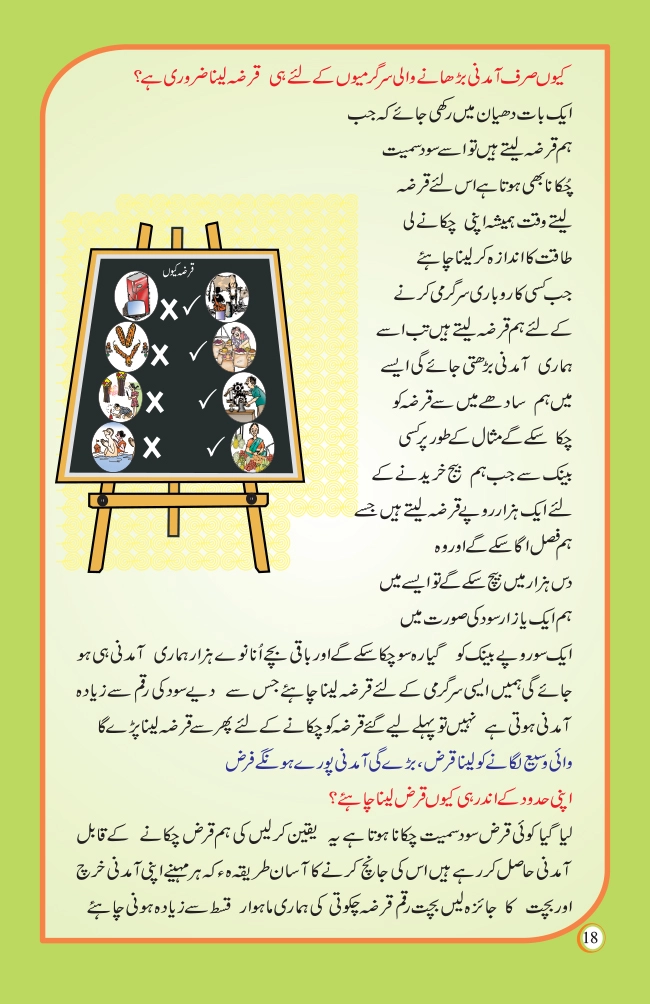 کیوں صرف آمدنی بڑھانے والی سرگرمیوں کے لئے ہی قرضہ لینا ضروری ہے؟
ایک بات دھیان میں رکھی جائے کہ جب
ہم قرضہ لیتے ہیں تو اسے سود سمیت
چُکانا بھی ہوتا ہے اس لئے قرضہ
لیتے وقت ہمیشہ اپنی چکانے لی
طاقت کا اندازہ کر لینا چاہئے
جب کسی کاروباری سرگرمی کرنے
کے لئے ہم قرضہ لیتے ہیں تب اسے
ہماری آمدنی بڑھتی جائے گی ایسے
میں ہم سادھے میں سے قرضہ کو
چکا سکے گے مثال کے طور پر کسی
بینک سے جب ہم بیج خریدنے کے
لئے ایک ہزار روپے قرضہ لیتے ہیں جسے
ہم فصل اگا سکے گے اور وہ
دس ہزار میں بیچ سکے گے تو ایسے میں
ہم ایک یازار سود کی صورت میں
ایک سو روپے بینک کو گیارہ سو چکا سکے گے اور باقی بچے اُنانوے ہزار ہماری آمدنی ہی ہو
جائے گی ہمیں ایسی سرگرمی کے لئے قرضہ لینا چاہئے جس سے دیے سود کی رقم سے زیادہ
آمدنی ہوتی ہے نہیں تو پہلے لیے گئے قرضہ کو چکانے کے لئے پھر سے قرضہ لینا پڑے گا
وائی وسیع لگانے کو لینا قرض، بڑے گی آمدنی پورے ہونگے فرض
اپنی حدود کے اندر ہی کیوں قرض لینا چاہئے؟
لیا گیا کوئی قرض سود سمیت چکانا ہوتا ہے یہ یقین کر لیں کی ہم قرض چکانے کے قابل
آمدنی حاصل کر رہے ہیں اس کی جانچ کرنے کا آسان طریقہ ہء کہ ہر مہینے اپنی آمدنی خرچ
اور بچت کا جائزہ لیں بچت رقم قرضہ چکوتی کی ہماری ماہوار قسط سے زیادہ ہونی چاہئے
قرضہ کیوں
18